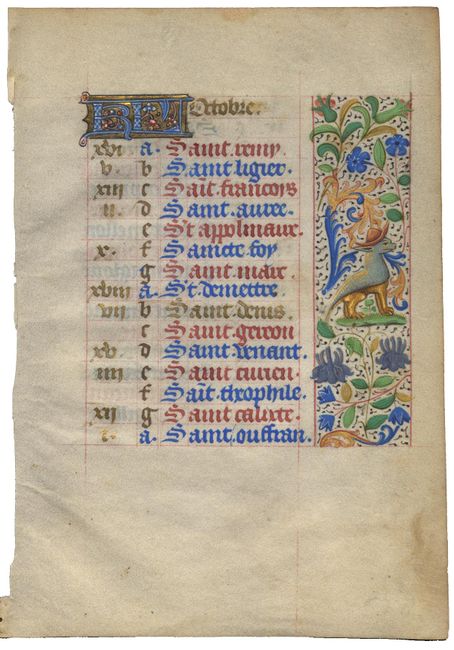 KL Octobre.
xvi a. Saint remy.
v. b Saint ligier.
xiii c Saīt francoys
ii. d Saint auree.
e St appolinaire.
x. f Saincte foy
g Saint marc.
xviii a. St demettre
vii b Saint denis.
c Saint gereon
xv. d Saint venant.
iiii e Saint
f Saīt
xii g Saint calixte.
i. a. Saint ouffran.